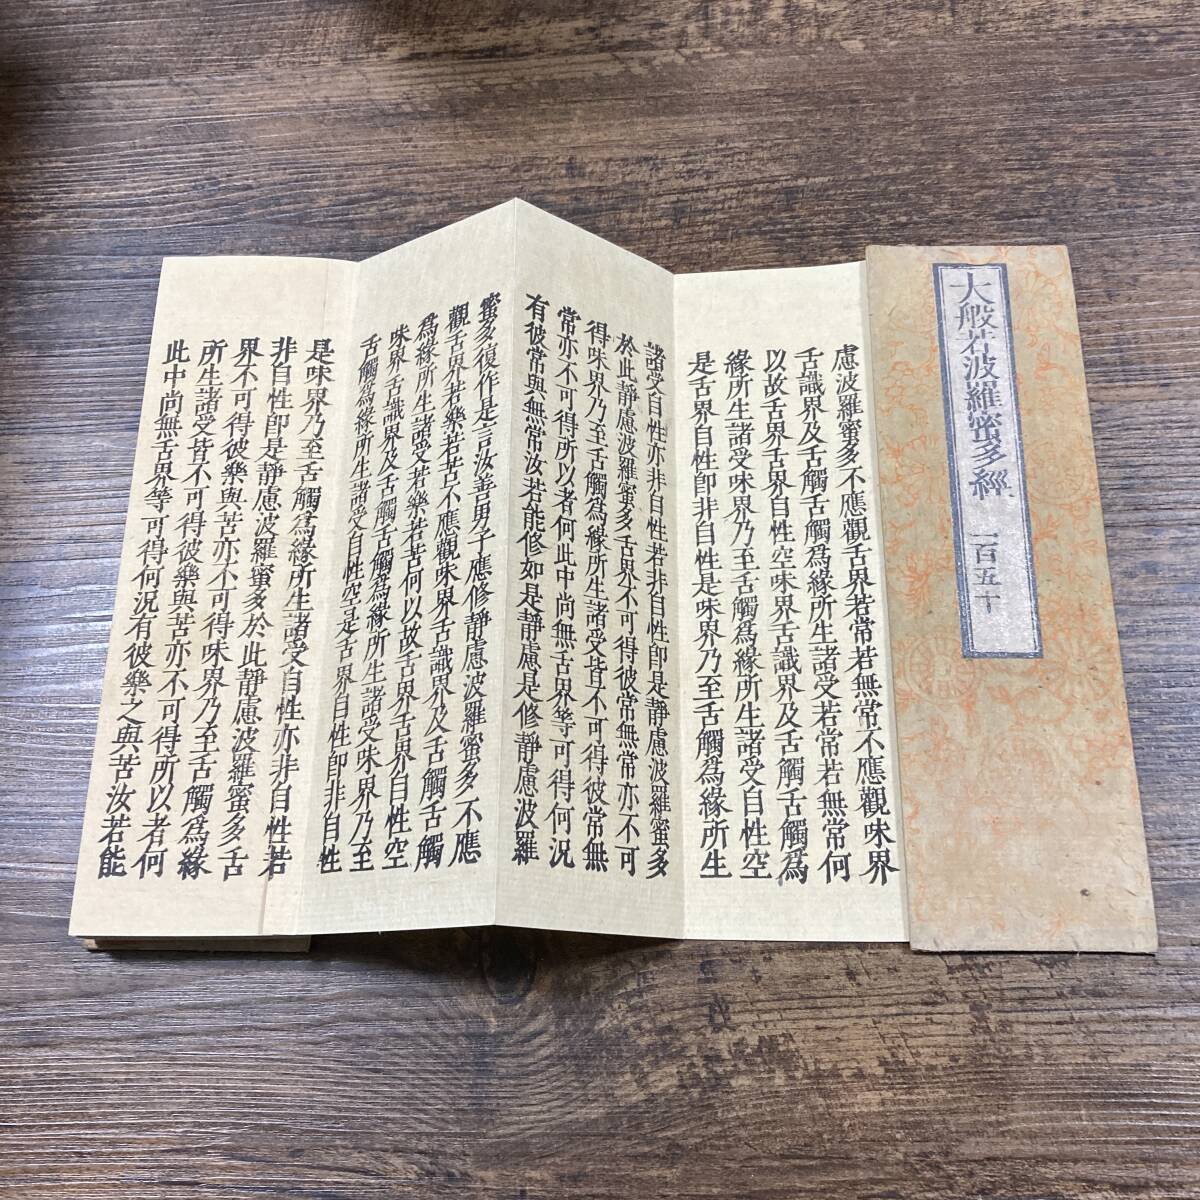 大般若波羅蜜多經 一百五十
慮波羅蜜多不應觀舌界若常若無常不應觀味界
舌識界及舌觸舌觸爲緣所生諸受若常若無常何
以故舌界舌界自性空味界舌識界及舌觸舌觸爲
緣所生諸受味界乃至舌觸爲緣所生諸受自性空
是舌界自性卽非自性是味界乃至舌觸爲緣所生
諸受自性亦非自性若非自性卽是靜慮波羅蜜多
於此靜慮波羅蜜多舌界不可得彼常無常亦不可
得味界乃至舌觸爲緣所生諸受皆不可得彼常無
常亦不可得所以者何此中尚無舌界等可得何況
有彼常與無常汝若能修如是靜慮是修靜慮波羅
蜜多復作是言汝善男子應修靜慮波羅蜜多不應
觀舌界若樂若苦不應觀味界舌識界及舌觸舌觸
爲緣所生諸受若樂若苦何以故舌界舌界自性空
味界舌識界及舌觸舌觸爲緣所生諸受味界乃至
舌觸爲緣所生諸受自性空是舌界自性卽非自性
是味界乃至舌觸爲緣所生諸受自性亦非自性若
非自性卽是靜慮波羅蜜多於此靜慮波羅蜜多舌
界不可得彼樂與苦亦不可得味界乃至舌觸爲緣
所生諸受皆不可得彼樂與苦亦不可得所以者何
此中尚無舌界等可得何況有彼樂之與苦汝若能